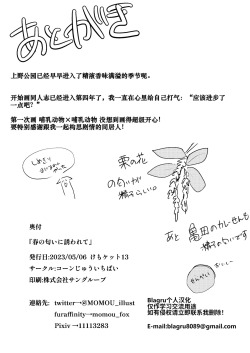 あとがき
上野公园已经早早进入了精液香味满溢的季节呢。
开始画同人志已经进入第四年了，我一直在心里给自己打气：“应该进步了
一点吧？”
第一次画 哺乳动物×哺乳动物 没想到画得超级开心！
要特别感谢跟我一起构思剧情的同居人！
栗の花
の匂いが
精子らしい。
あと
亀田のカレーせんも
精子の匂いです
せんべい
おいしい
奥付
「春の匂いに誘われて」
発行日:2023/05/06 けもケット13
サークル:コーンじゅういちばい
印刷:株式会社サングループ
連絡先: twitter→@MOMOU_illust
furaffinity→momou_fox
Pixiv→11113283
Blagru个人汉化
仅作学习交流用途
如有侵权请立即联系我删除!
E-mail:blagru8089@gmail.com